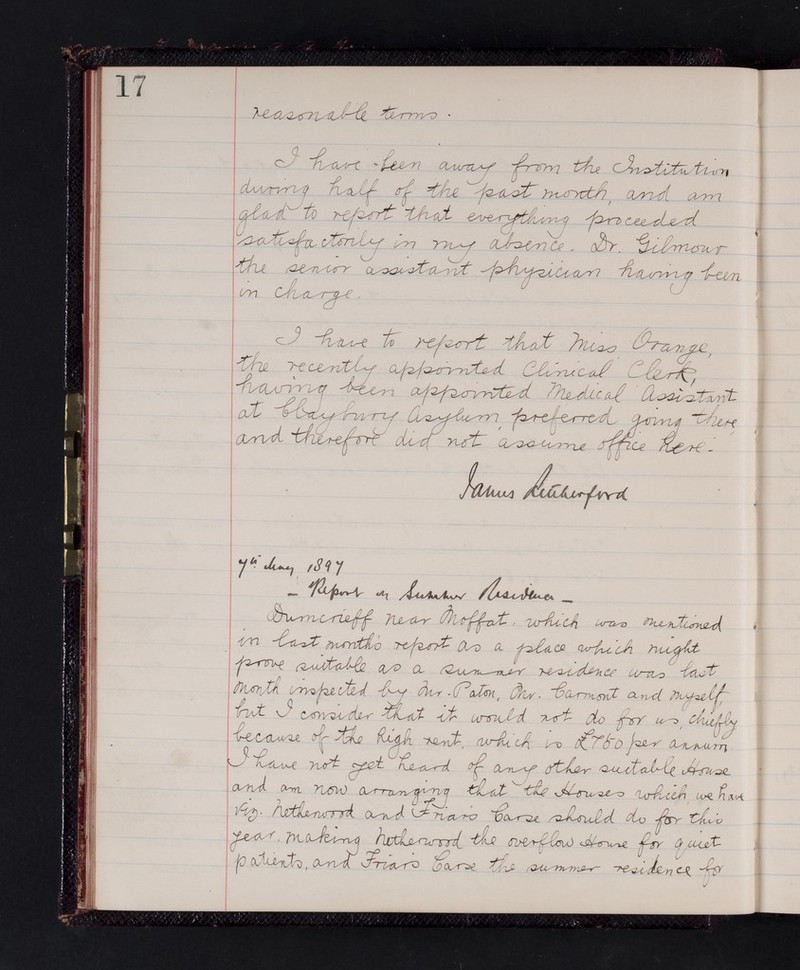 17
reasonable terms.
I have been away from the Institution
during half of the past month, and am
glad to report that everything proceeded
satisfactorily in my absence. Dr. Gilmour
the senior assistant physician having been
in charge.
I have to report that Miss Orange,
the recently appointed Clinical Clerk,
having been appointed Medical Assistant
at Claybury Asylum, preferred going there,
and therefore did not assume office here.
James Rutherford
7th May 1897
- Report on Summer Residence -
Dumcrieff near Moffat. which was mentioned
in last month's report as a place which might
prove suitable as a summer residence was last
month inspected by Mr. Paton, Mr. Carmont and myself,
but I consider that it would not do for us, chiefly
because of the high rent, which is £750 per annum
I have not yet heard of any other suitable House
and am now arranging that the Houses which we have
viz. Netherwood and Friars Carse should do for this
year, making Netherwood the overflow House for quiet
patients, and Friars Carse the summer residence for